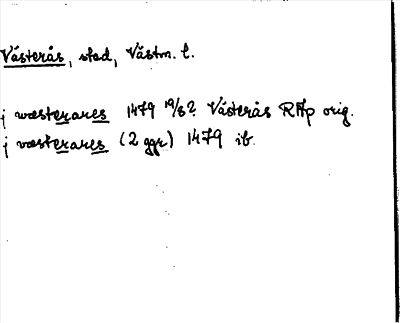 Västerås, stad, Västm. l.
j wæsterares 1479 19/8? Västerås RAp orig.
j væsterares (2 ggr) 1479 ib.